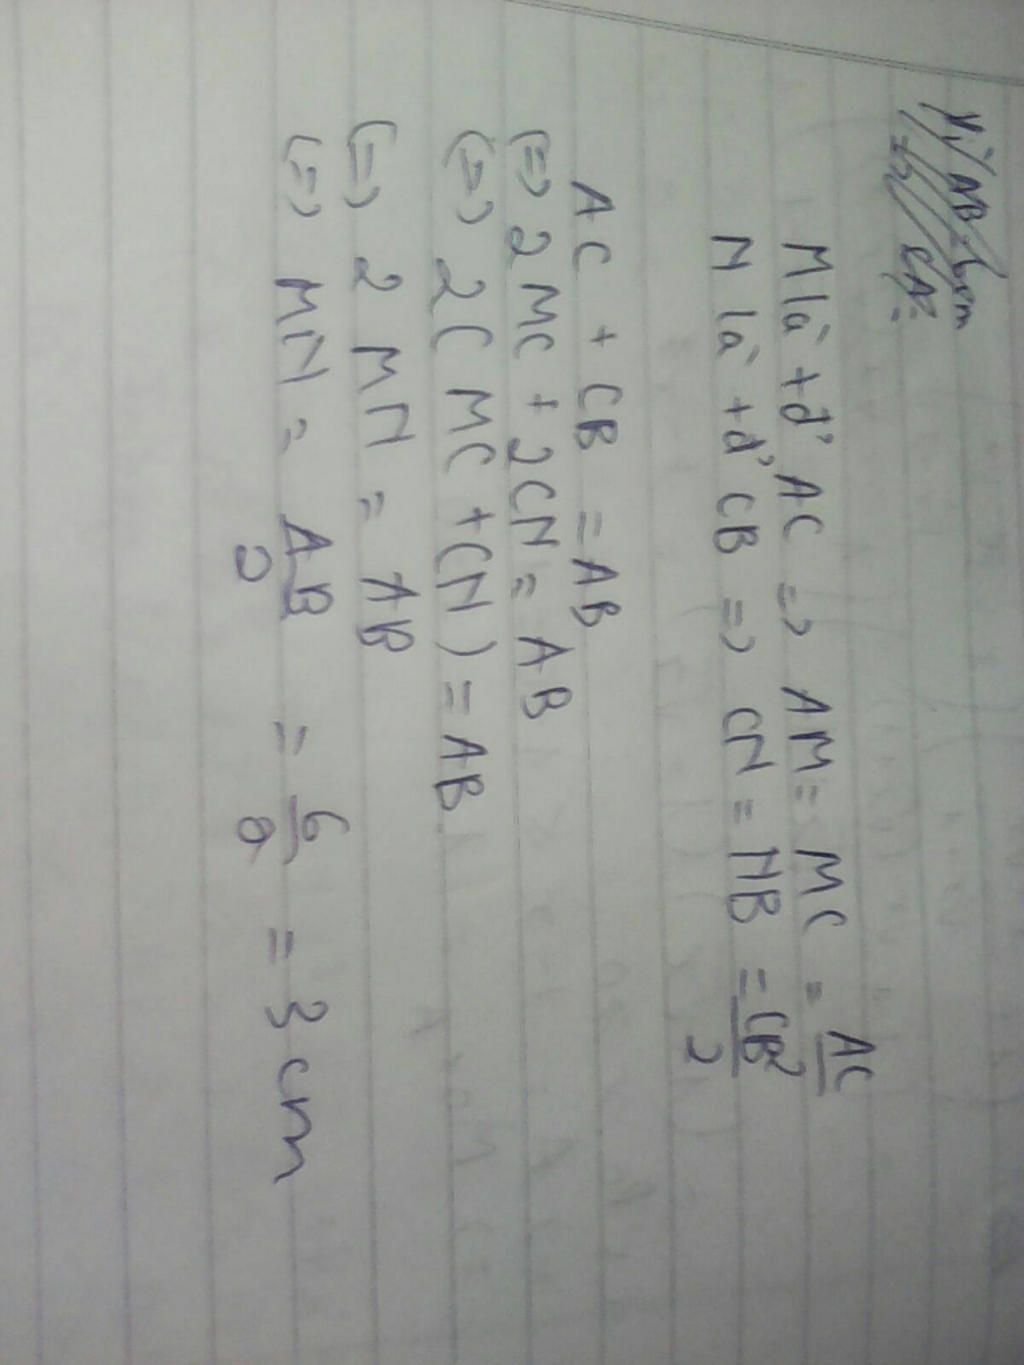 Vì AB = 6cm
M là tđ' AC => AM = MC = AC/2
N là tđ' CB => CN = NB = CB/2
AC + CB = AB
(=) 2MC + 2CN = AB
(=) 2(MC + CN) = AB
(=) 2MN = AB
(=) MN = AB/2 = 6/2 = 3cm